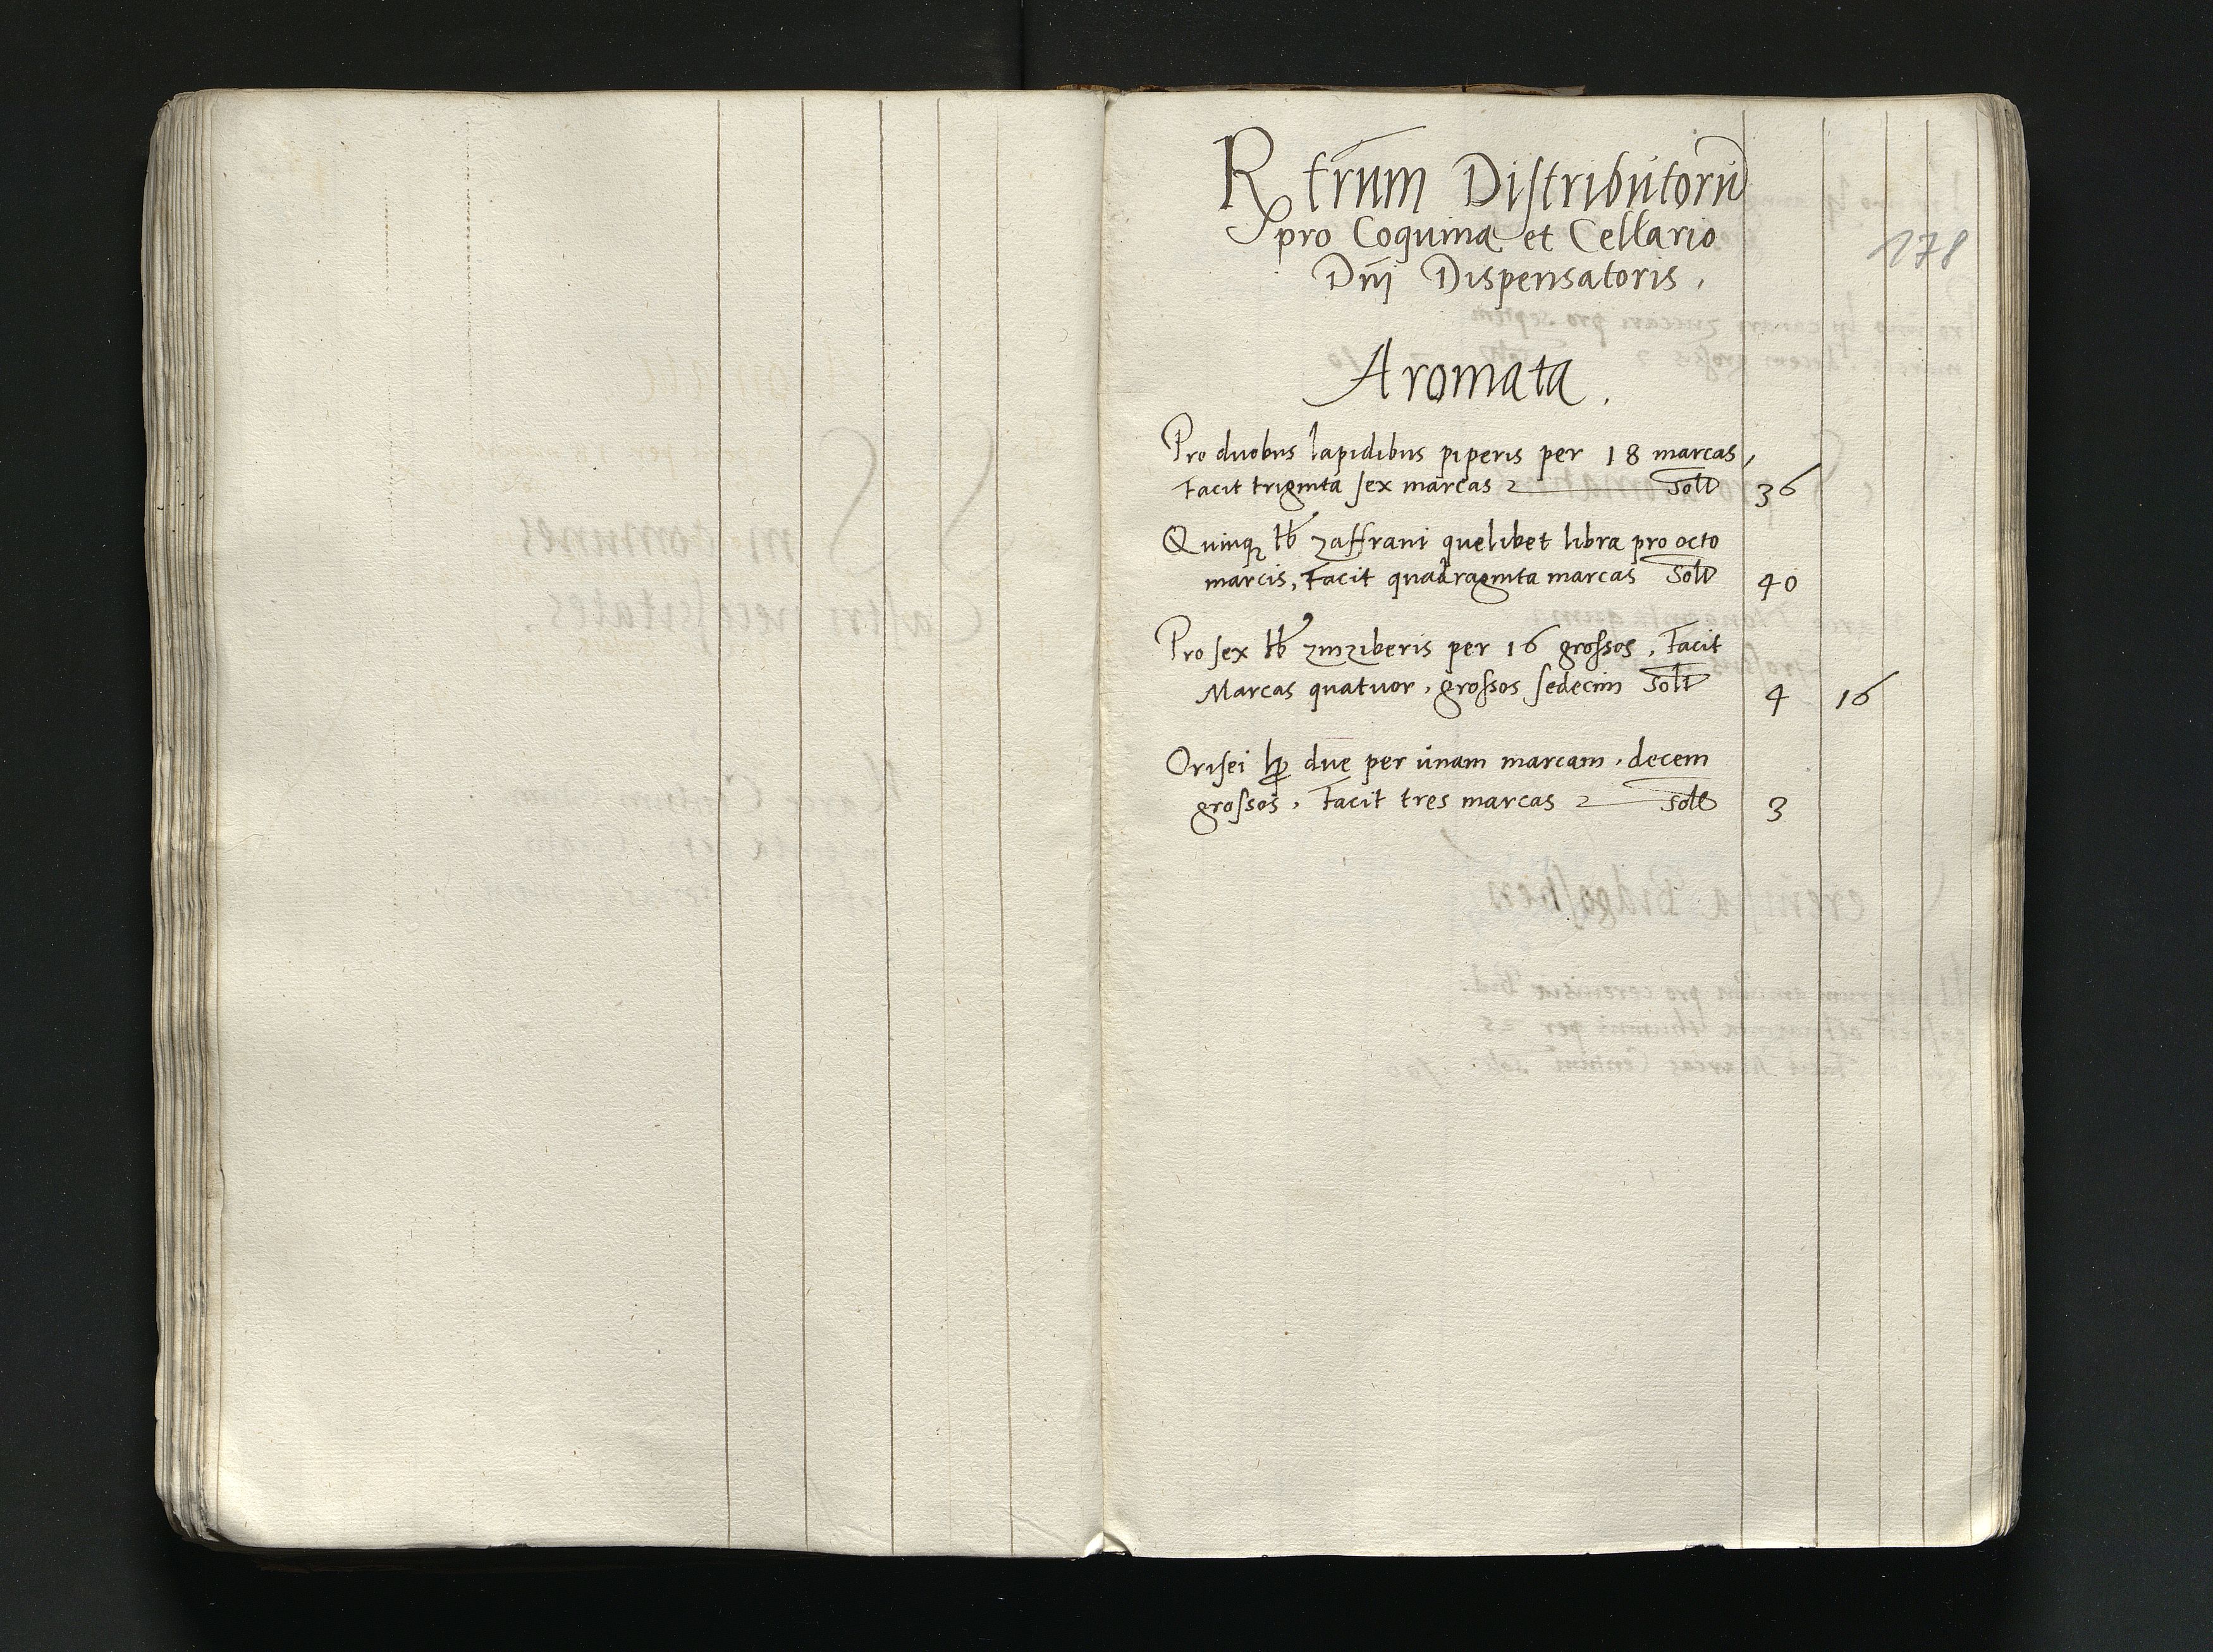 Rtrum Distributorũ
pro Coquina et Cellario
Dnĩ Dispensatoris.
178
Aromata.
Pro duobus lapidibus piperis per 18 marcas,
Facit triginta sex marcas solt 36
Quinqꝫ lb zaffrani quelibet libra pro octo
marcis, Facit quadraginta marcas solt 40
Pro sex lb zinziberis per 16 grossos, Facit
Marcas quatuor, grossos sedecim solt 4 16
Orisei due per unam marcam, decem
grossos, Facit tres marcas solt 3